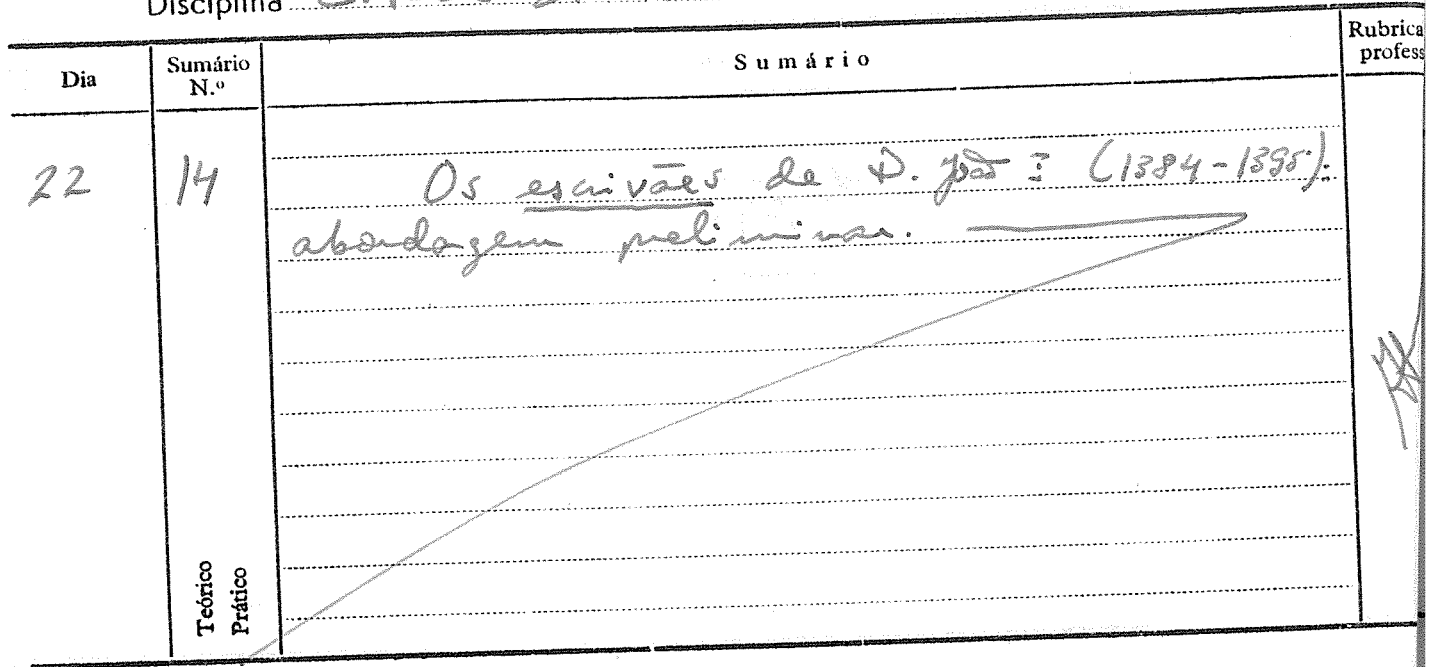 Disciplina
Dia
Sumário N.º
Sumário
Rubrica
profess
22
14
Os escrivães de D. João I (1384-1395):
abordagem preliminar.
Teórico
Prático